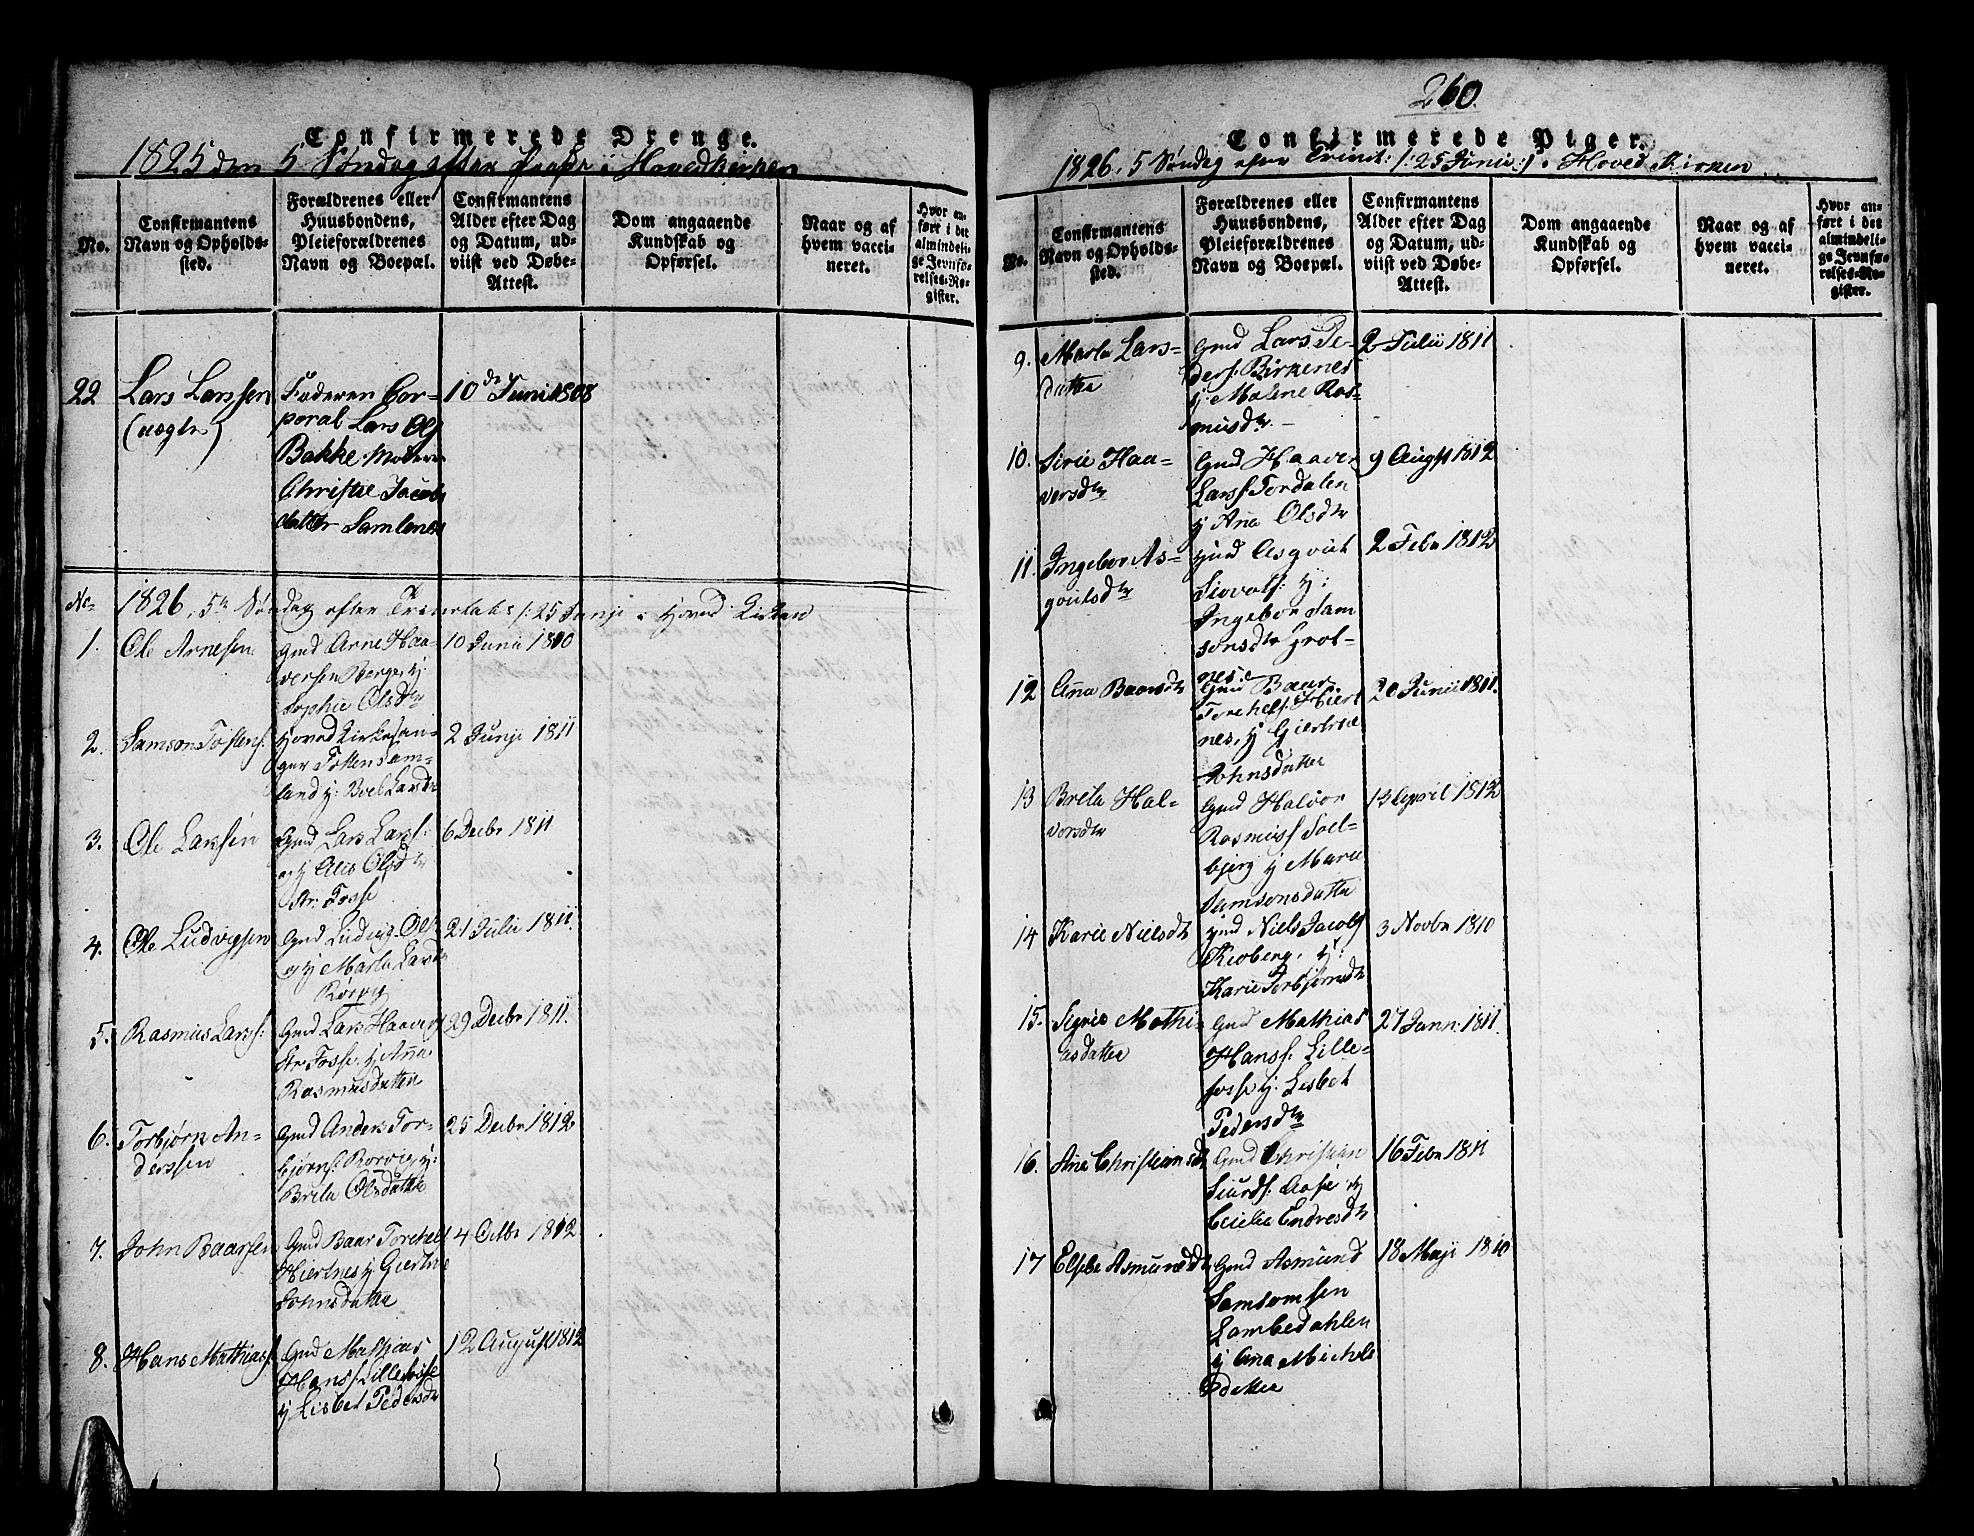 Confirmerede Drenge.
1825 den 5 Søndag efter Paaske i Hovedkirken
No.
Confirmantens
Navn og Opholds-
sted.
Forældrenes eller
Huusbondens,
Pleieforældrenes
Navn og Boepæl.
Confirmantens
Alder efter Dag
og Datum, ud-
viist ved Døbe-
Attest.
Dom angaaende
Kundskab og
Opførsel.
Naar og af
hvem vacci-
neret.
Hvor an-
ført i det
almindeli-
ge Jevnfø-
relses-Re-
gister.
22
Lars Larssen
(uægte)
Faderen Cor-
poral Lars Ols
Bakke. Moderen
Christie Jacobs
datter Samlenes
10de Juni 1808
No. 1826, 5te Søndag efter Trinitatis /: 25 Junji i Hoved Kirken
1.
Ole Arnesen
Gmd Arne Haa-
versen Berge, &
Sophie Olsdtr
10 Junii 1810
2.
Samson Tostens.
Hoved Kirkesan-
ger Tosten Sam-
land &: Boel Larsdtr
2 Junji 1811
3.
Ole Larsen
Gmd Lars Lars:
og Olsdtr
Str: Fosse
6 Decbr 1811
4.
Ole Ludvigsen
Gmd Ludvig Ols
og Marta Larsdtr
Rørvig
21 Julii 1811
5.
Rasmus Lars:
Gmd Lars Haavers
Str: Fosse & Anna
Rasmusdatter
29 Decbr 1811.
6.
Torbjørn An-
derssen
Gmd Anders Tor-
bjørns: Rorvig, &:
Brita Olsdatter
25 Decbr 1812
7.
John Baarsen
Gmd Baar Torchels
Hiertnes & Giertrue
Johnsdatter
4 Octbr 1812
8.
Hans Mathias:
Gmd Mathias
Hans: Lillefosse
& Lisbet Pedersdtr
12 August 1812
260.
Confirmerede Piger.
1826, 5 Søndag efter Trinit: /: 25 Junii :/ i Hoved Kirken
No.
Confirmantens
Navn og Opholds-
sted.
Forældrenes eller
Huusbondens,
Pleieforældrenes
Navn og Boepæl.
Confirmantens
Alder efter Dag
og Datum, ud-
viist ved Døbe-
Attest.
Dom angaaende
Kundskab og
Opførsel.
Naar og af
hvem vacci-
neret.
Hvor an-
ført i det
almindeli-
ge Jevnfø-
relses-Re-
gister.
9.
Marta Lars-
datter
Gmd Lars Pe-
ders: Birkenes
& Malene Ras-
musdtr
2 Julii 1811
10.
Sirie Haa-
versdtr
Gmd Haaver
Lars: Tordalen
& Ana Olsdtr
9 Augst 1812
11.
Ingebor As-
goutsdtr
Gmd Asgout
Siovats: &:
Ingebor Sam
sonsdtr Grot-
nes:
2 Febr 1812
12
Anna Baarsdtr
Gmd Baar
Torchels: Hiert
nes, & Giertrue
Johnsdatter
20 Junii 1811.
13
Brita Hal-
vorsdtr
Gmd Halvor
Rasmuss Soel-
bjerg & Marie
Samsonsdatter
13 April 1812
14
Karie Nielsdtr
Gmd Niels Jacobs
Kioberg, &:
Karie Torbjørnsdtr
3 Novbr 1810
15.
Sigrie Mathi
asdatter
Gmd Mathias
Hans: Lille-
fosse &: Lisbet
Pedersdtr
27 Jann: 1811.
16.
Ana Christiansdtr
Gmd Christian
Siurds: Aase &
Ceielia Endresdtr
16 Febr 1811
17
Elsebe Asmundsdtr
Gmd Asmund
Samsomsen
Lambedahlen
& Ana Michels
datter
18 Maji 1810